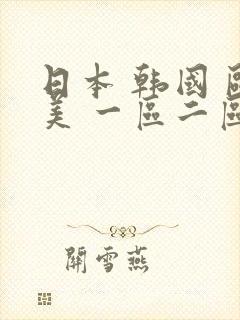 日本韩國區
美 一區二區
開雪燕